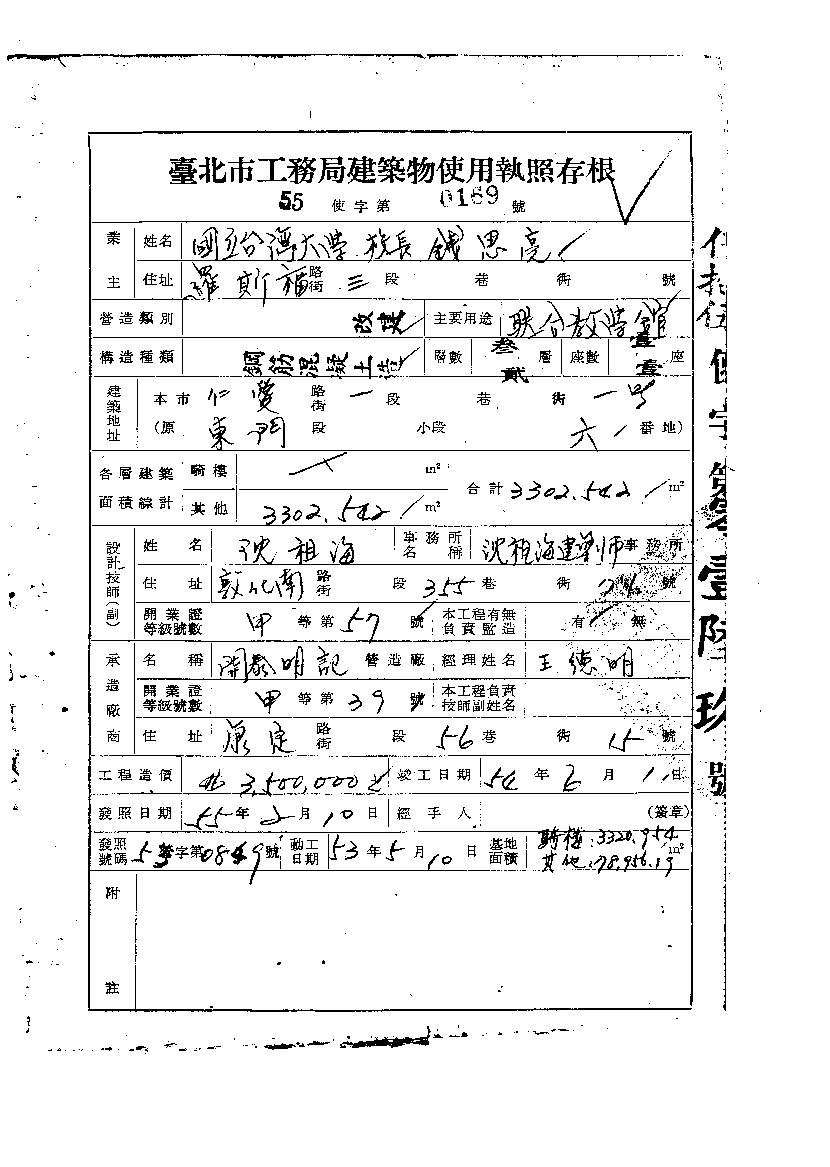 臺北市工務局建築物使用執照存根
55 使字第 0169 號
業主 姓名 國立台灣大學 校長 錢思亮
住址 羅斯福 路街 三 段 巷 街 號
營造類別 改建 主要用途 聯合教學館
構造種類 鋼筋混凝土造 層數 叁貳 層 座數 壹壹 座
建築地址 本市 仁愛 路街 一 段 巷 街 一号
(原 東門 段 小段 六 番地)
各層建築面積綜計 騎樓 m² 合計 3302.542 m²
其他 3302.542 m²
設計技師(副) 姓名 沈祖海 事務所名稱 沈祖海建築師事務所
住址 敦化南 路街 段 355 巷 街 號
開業證等級號數 甲 等第 57 號 本工程有無負責監造 有 無
承造廠商 名稱 開泰明記 營造廠 經理姓名 王德明
開業證等級號數 甲 等第 39 號 本工程負責技師副姓名
住址 康定 路街 段 56 巷 街 15 號
工程造價 3,500,000 竣工日期 54 年 6 月 1 日
發照日期 55 年 2 月 10 日 經手人 (簽章)
發照號碼 53 字第 0849 號 動工日期 53 年 5 月 10 日 基地面積 騎樓:3320.954 m²
其他:78,956.19
附註
伍拾伍使字第零壹陸玖號